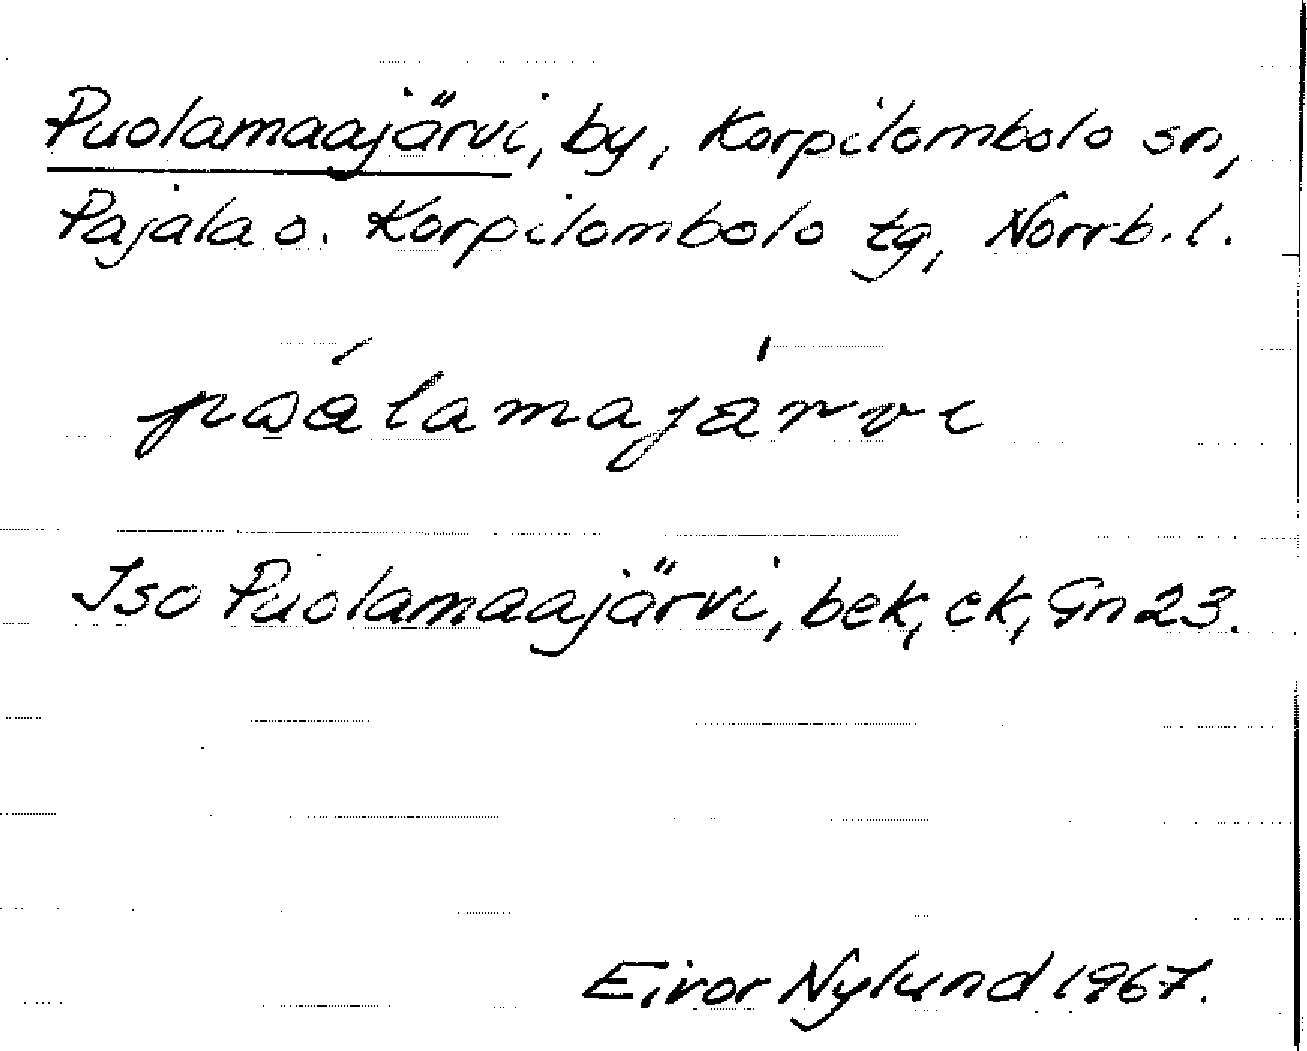 Puolamaajärvi, by, Korpilombolo sn,
Pajala o. Korpilombolo tg, Norrb. l.
Iso Puolamaajärvi, bek, ek, Gn 23.
Eivor Nylund 1967.